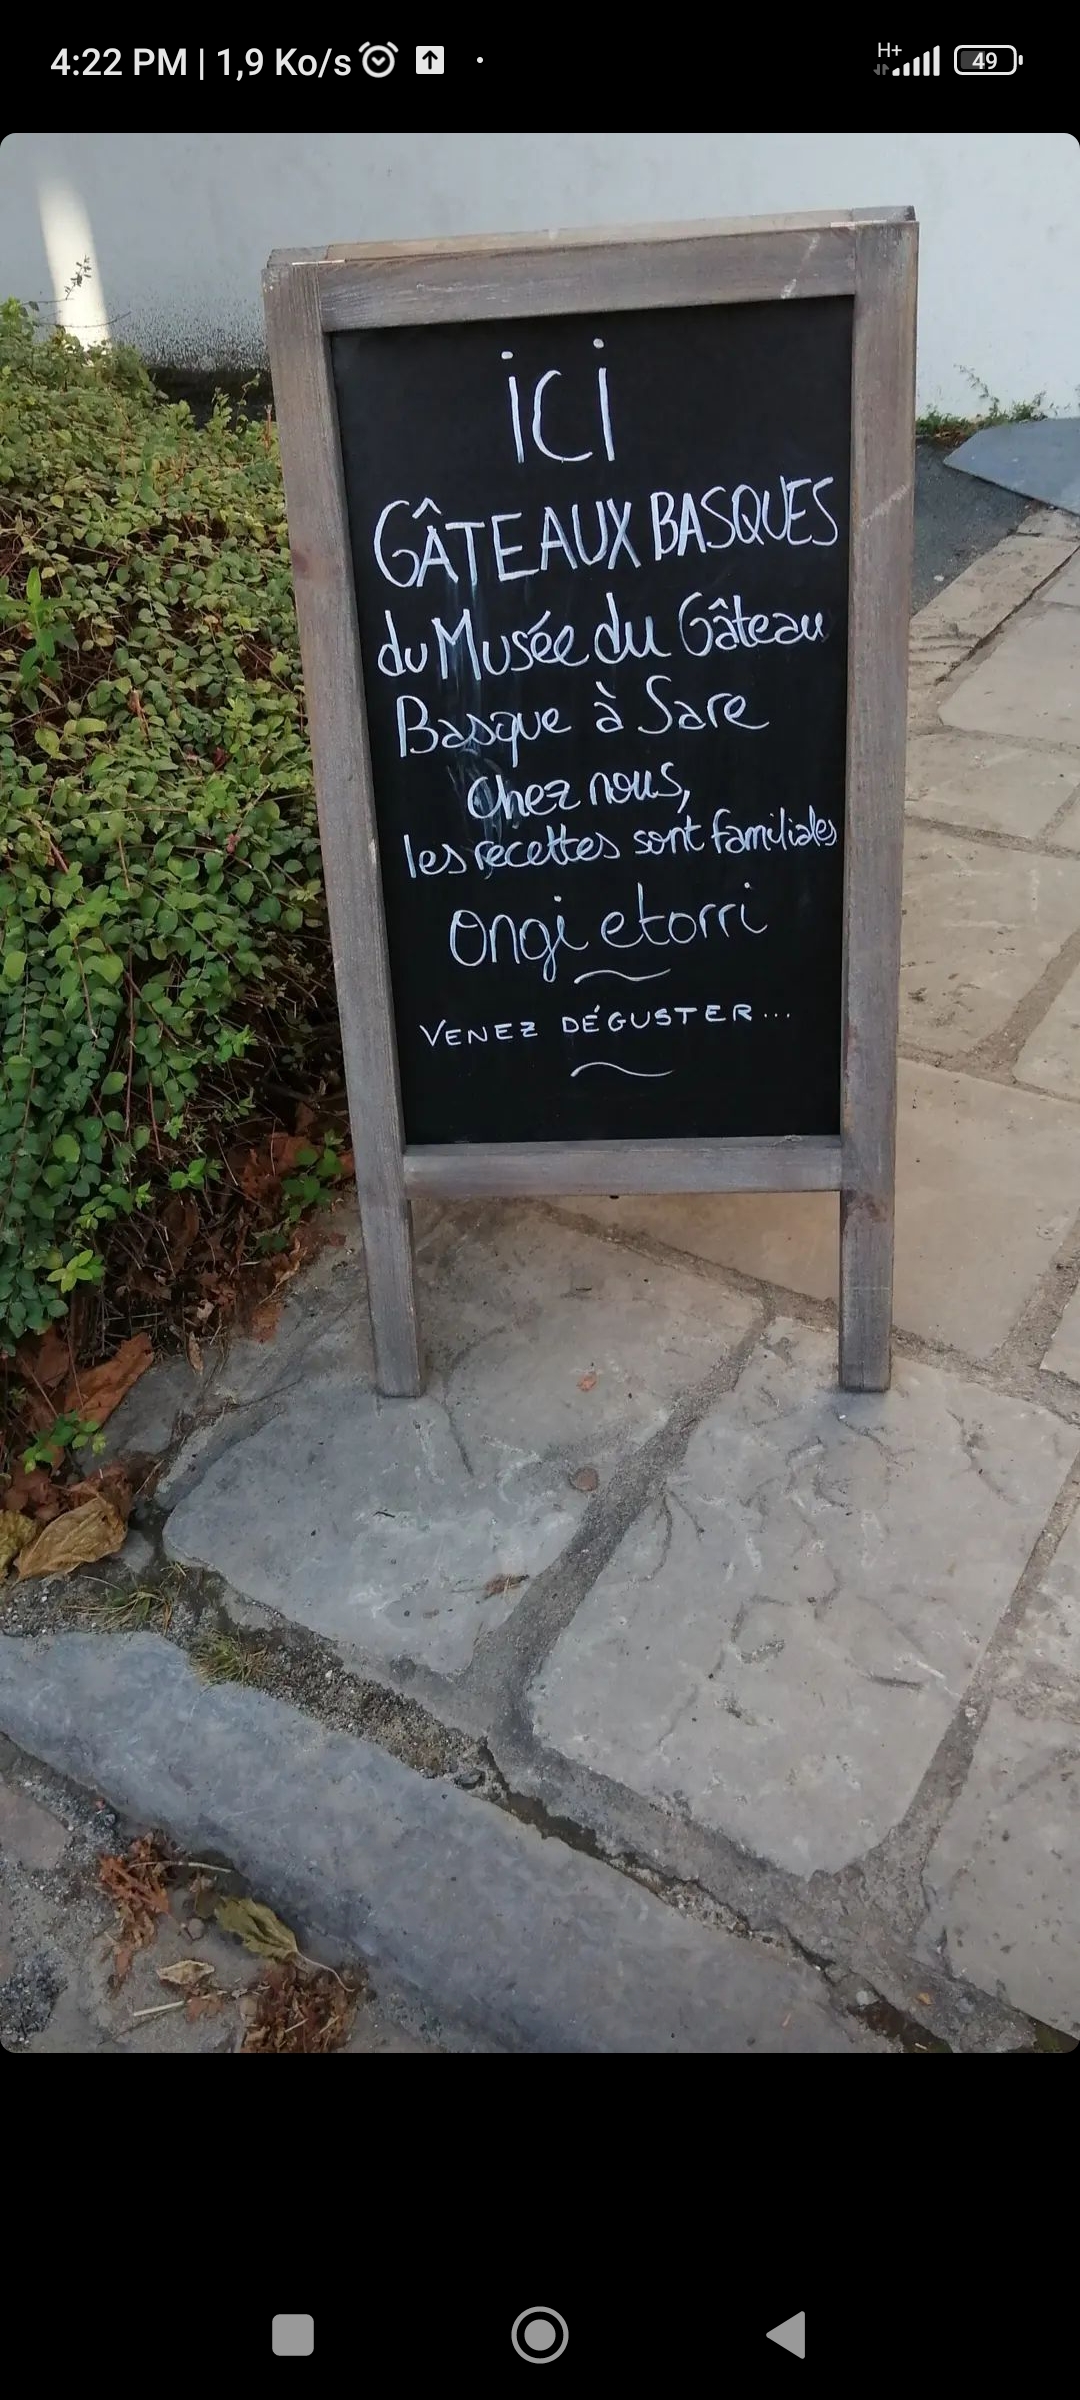 4:22 PM | 1,9 Ko/s
H+
49
iCi
GÂTEAUX BASQUES
du Musée du Gâteau
Basque à Sare
Chez nous,
les recettes sont familiales
Ongi etorri
VENEZ DÉGUSTER...